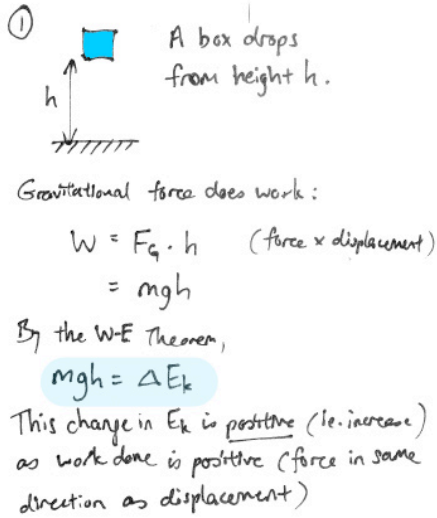 ①
A box drops
from height h.
h
Gravitational force does work:
W = F_G · h (force × displacement)
= mgh
By the W-E Theorem,
mgh = ΔE_k
This change in E_k is positive (ie. increase)
as work done is positive (force in same
direction as displacement)